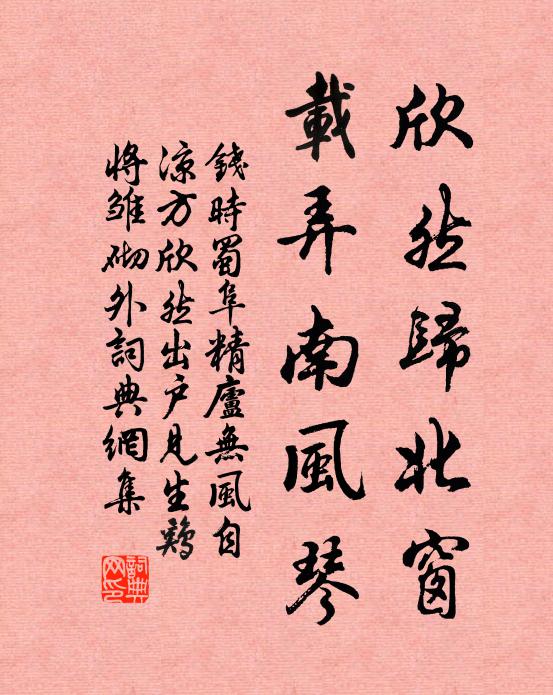 欣然歸北窗
載弄南風琴
錢時蜀阜精廬無風自
凉方欣然出户見生鷄
將雛砌外詞典網集
詞典网印